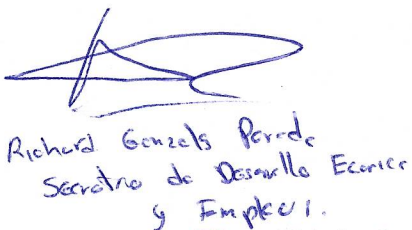 Richard Gonzals Parede
Secretrio de Desarrollo Economico
y Empleo.